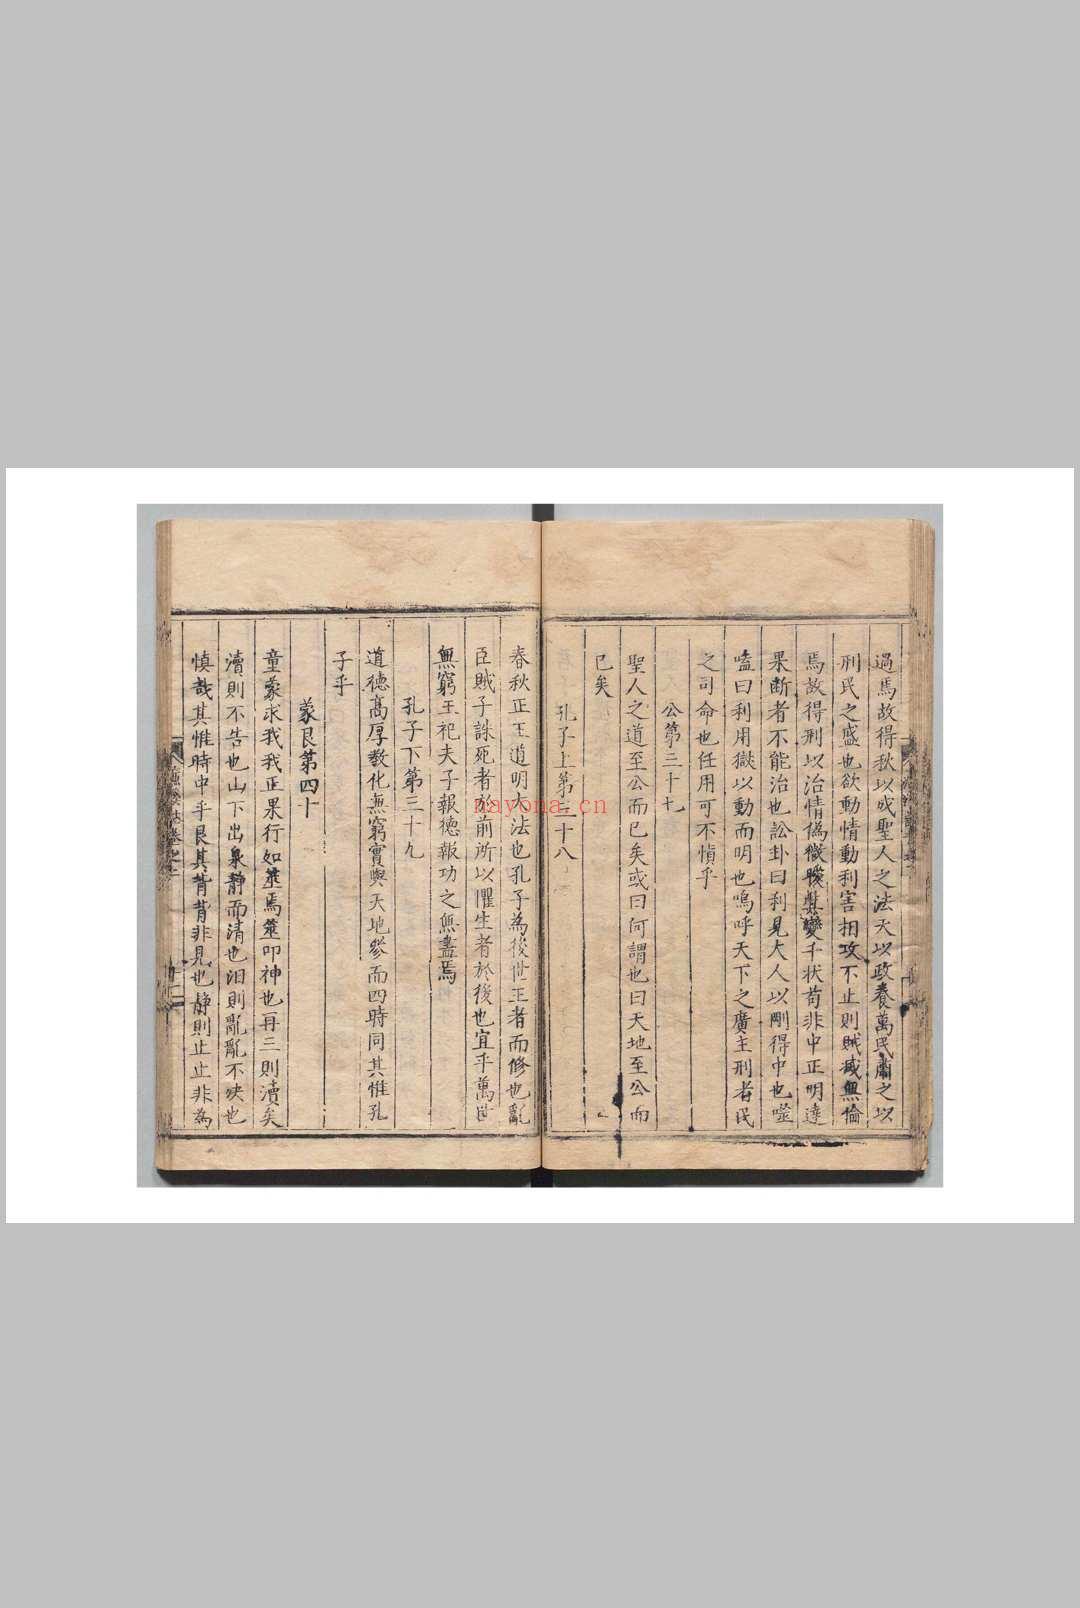 過焉故得秋以成聖人之法天以政養萬民肅之以
刑民之盛也欲動情動利害相攻不止則賊滅無倫
焉故得刑以治情偽微曖其變千状苟非中正明達
果断者不能治也訟卦曰利見大人以剛得中也噬
嗑曰利用獄以動而明也嗚呼天下之廣主刑者民
之司命也任用可不慎乎
公第三十七
聖人之道至公而已矣或曰何謂也曰天地至公而
已矣
孔子上第三十八
春秋正王道明大法也孔子為後世王者而修也亂
臣賊子誅死者於前所以懼生者於後也宜乎萬世
無窮王祀夫子報德報功之無盡焉
孔子下第三十九
道德高厚教化無窮實與天地參而四時同其惟孔
子乎
蒙艮第四十
童蒙求我我正果行如筮焉筮叩神也再三則瀆矣
瀆則不告也山下出泉静而清也汨則亂亂不决也
慎哉其惟時中乎艮其背背非見也静則止止非為
nayona.cn